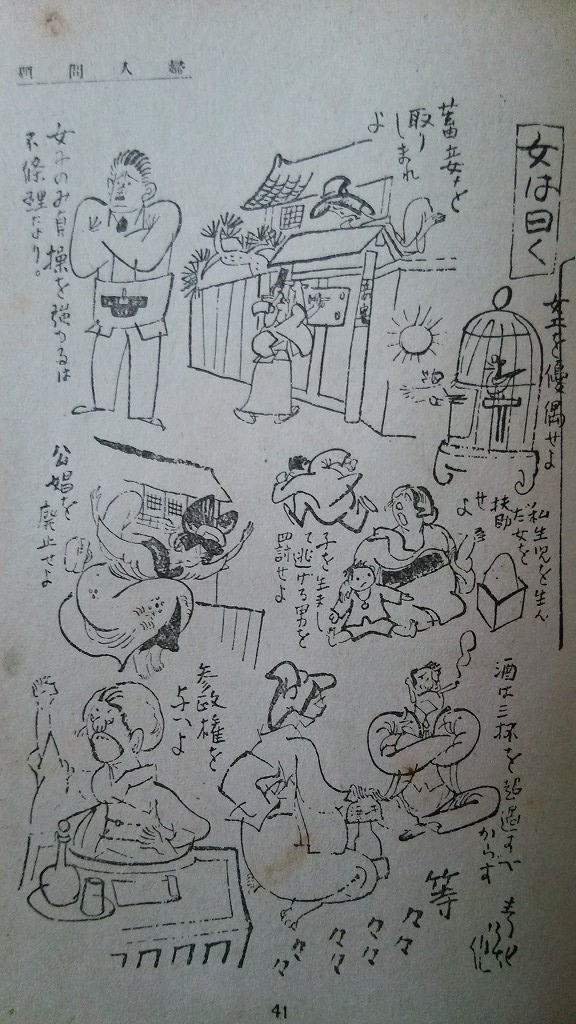 婦人問題
女は曰く
女を優遇せよ
蓄妾を
取り
しまれ
よ
女子のみ貞操を強かるは
不條理なり。
私生児を生ん
だ女を
扶助
せよ
子を生まし
て逃げる男を
罰せよ
公娼を
廃止せよ
酒は三杯を超過すべ
からず
参政権を
与へよ
等
々々
々々
々々
々々
41